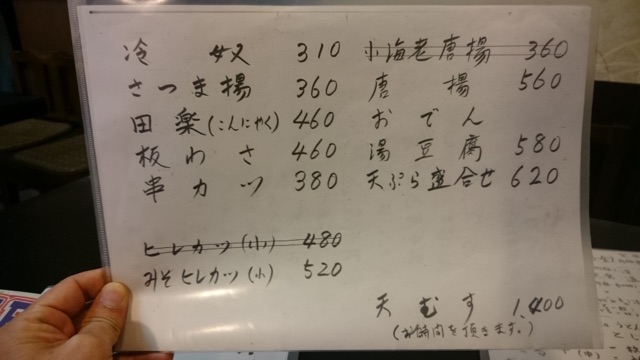 冷奴 310
さつま揚 360
田楽(こんにゃく) 460
板わさ 460
串カツ 380
ヒレカツ(小) 480
みそヒレカツ(小) 520
小海老唐揚 360
唐揚 560
おでん
湯豆腐 580
天ぷら盛合せ 620
天むす 1,400
(お時間を頂きます。)